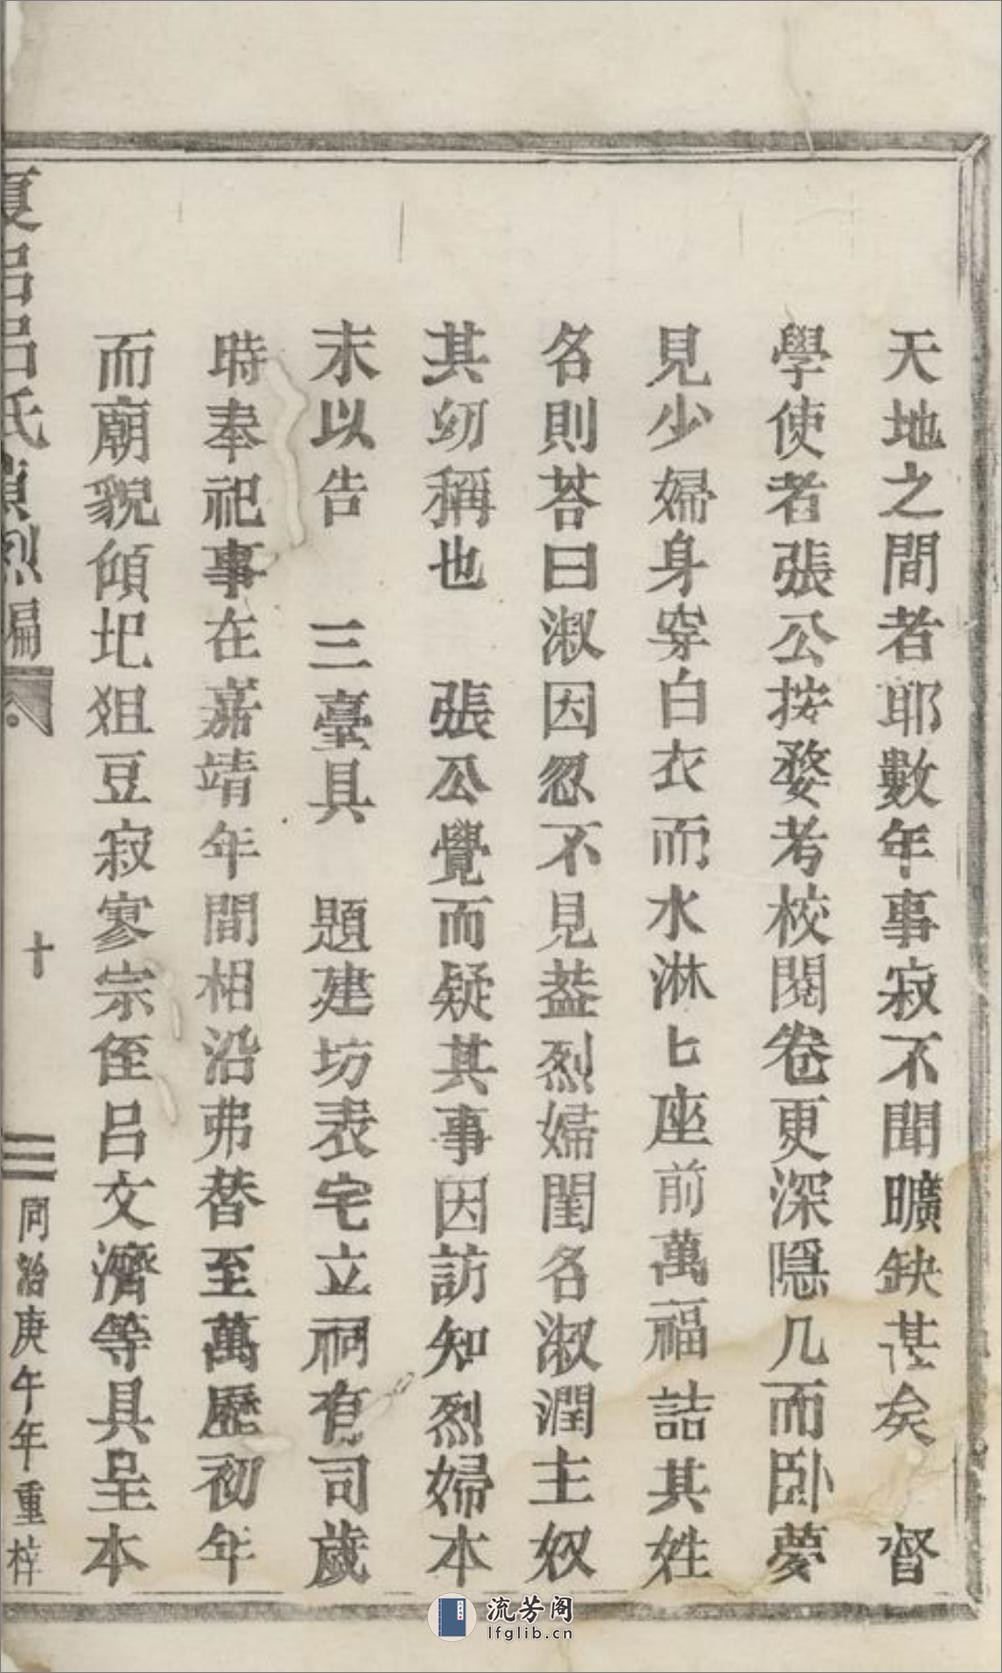 天地之間者耶數年事寂不聞曠缺甚矣　督
學使者張公按婺考校閱卷更深隱几而卧夢
見少婦身穿白衣而水淋匕座前萬福詰其姓
名則荅曰淑因忽不見葢烈婦閨名淑潤主奴
其幼稱也　張公覺而疑其事因訪知烈婦本
末以告　三臺具　題建坊表宅立祠有司歲
時奉祀事在嘉靖年間相沿弗替至萬歷初年
而廟貌傾圮俎豆寂寥宗侄呂文濟等具呈本
呂氏貞烈編
十
同治庚午年重梓
流芳阁
lfglib.cn